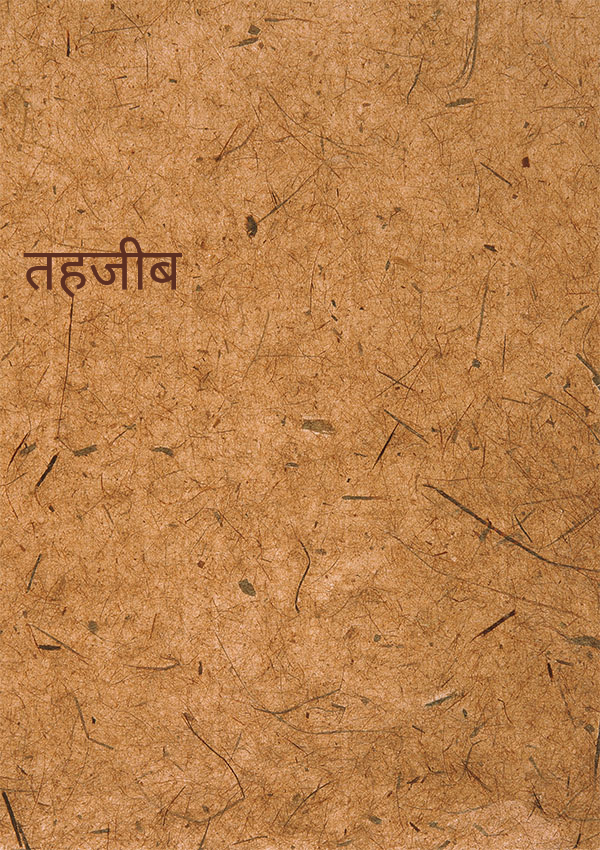 तहजीब